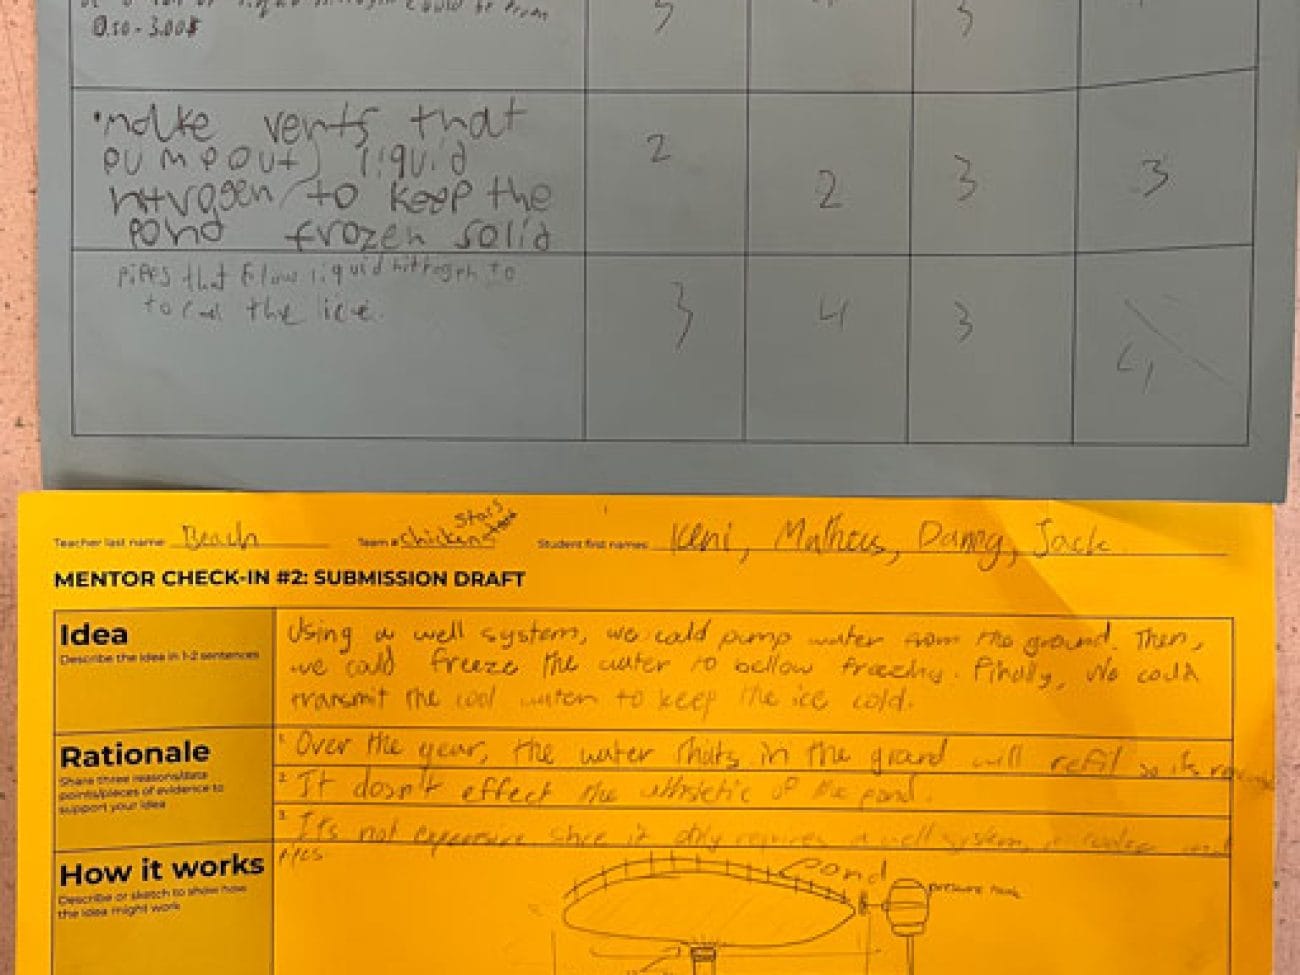 liquid nitrogen could be from
0.50 - 3.00$
3 3
•make vents that
pumpout) liquid
nitrogen/to keep the
pond frozen solid
2 2 3 3
pipes that flow liquid nitrogen to
to cool the ice.
3 4 3 4
Teacher last name: Beach Team #: Chicken Stars Student first names: Keni, Matheus, Danny, Jack
MENTOR CHECK-IN #2: SUBMISSION DRAFT
Idea
Describe the idea in 1-2 sentences
Using a well system, we cold pump water from the ground. Then,
we could freeze the water to bellow freezing. Finally, we could
transmit the cool water to keep the ice cold.
Rationale
Share three reasons/data
points/pieces of evidence to
support your idea
1. Over the year, the water thats in the ground will refil so its
2. It doesn't effect the of the pond.
3. It's not expensive since it only requires a well system, a cooler and
pipes
How it works
Describe or sketch to show how
the idea might work
pond
pressure tank